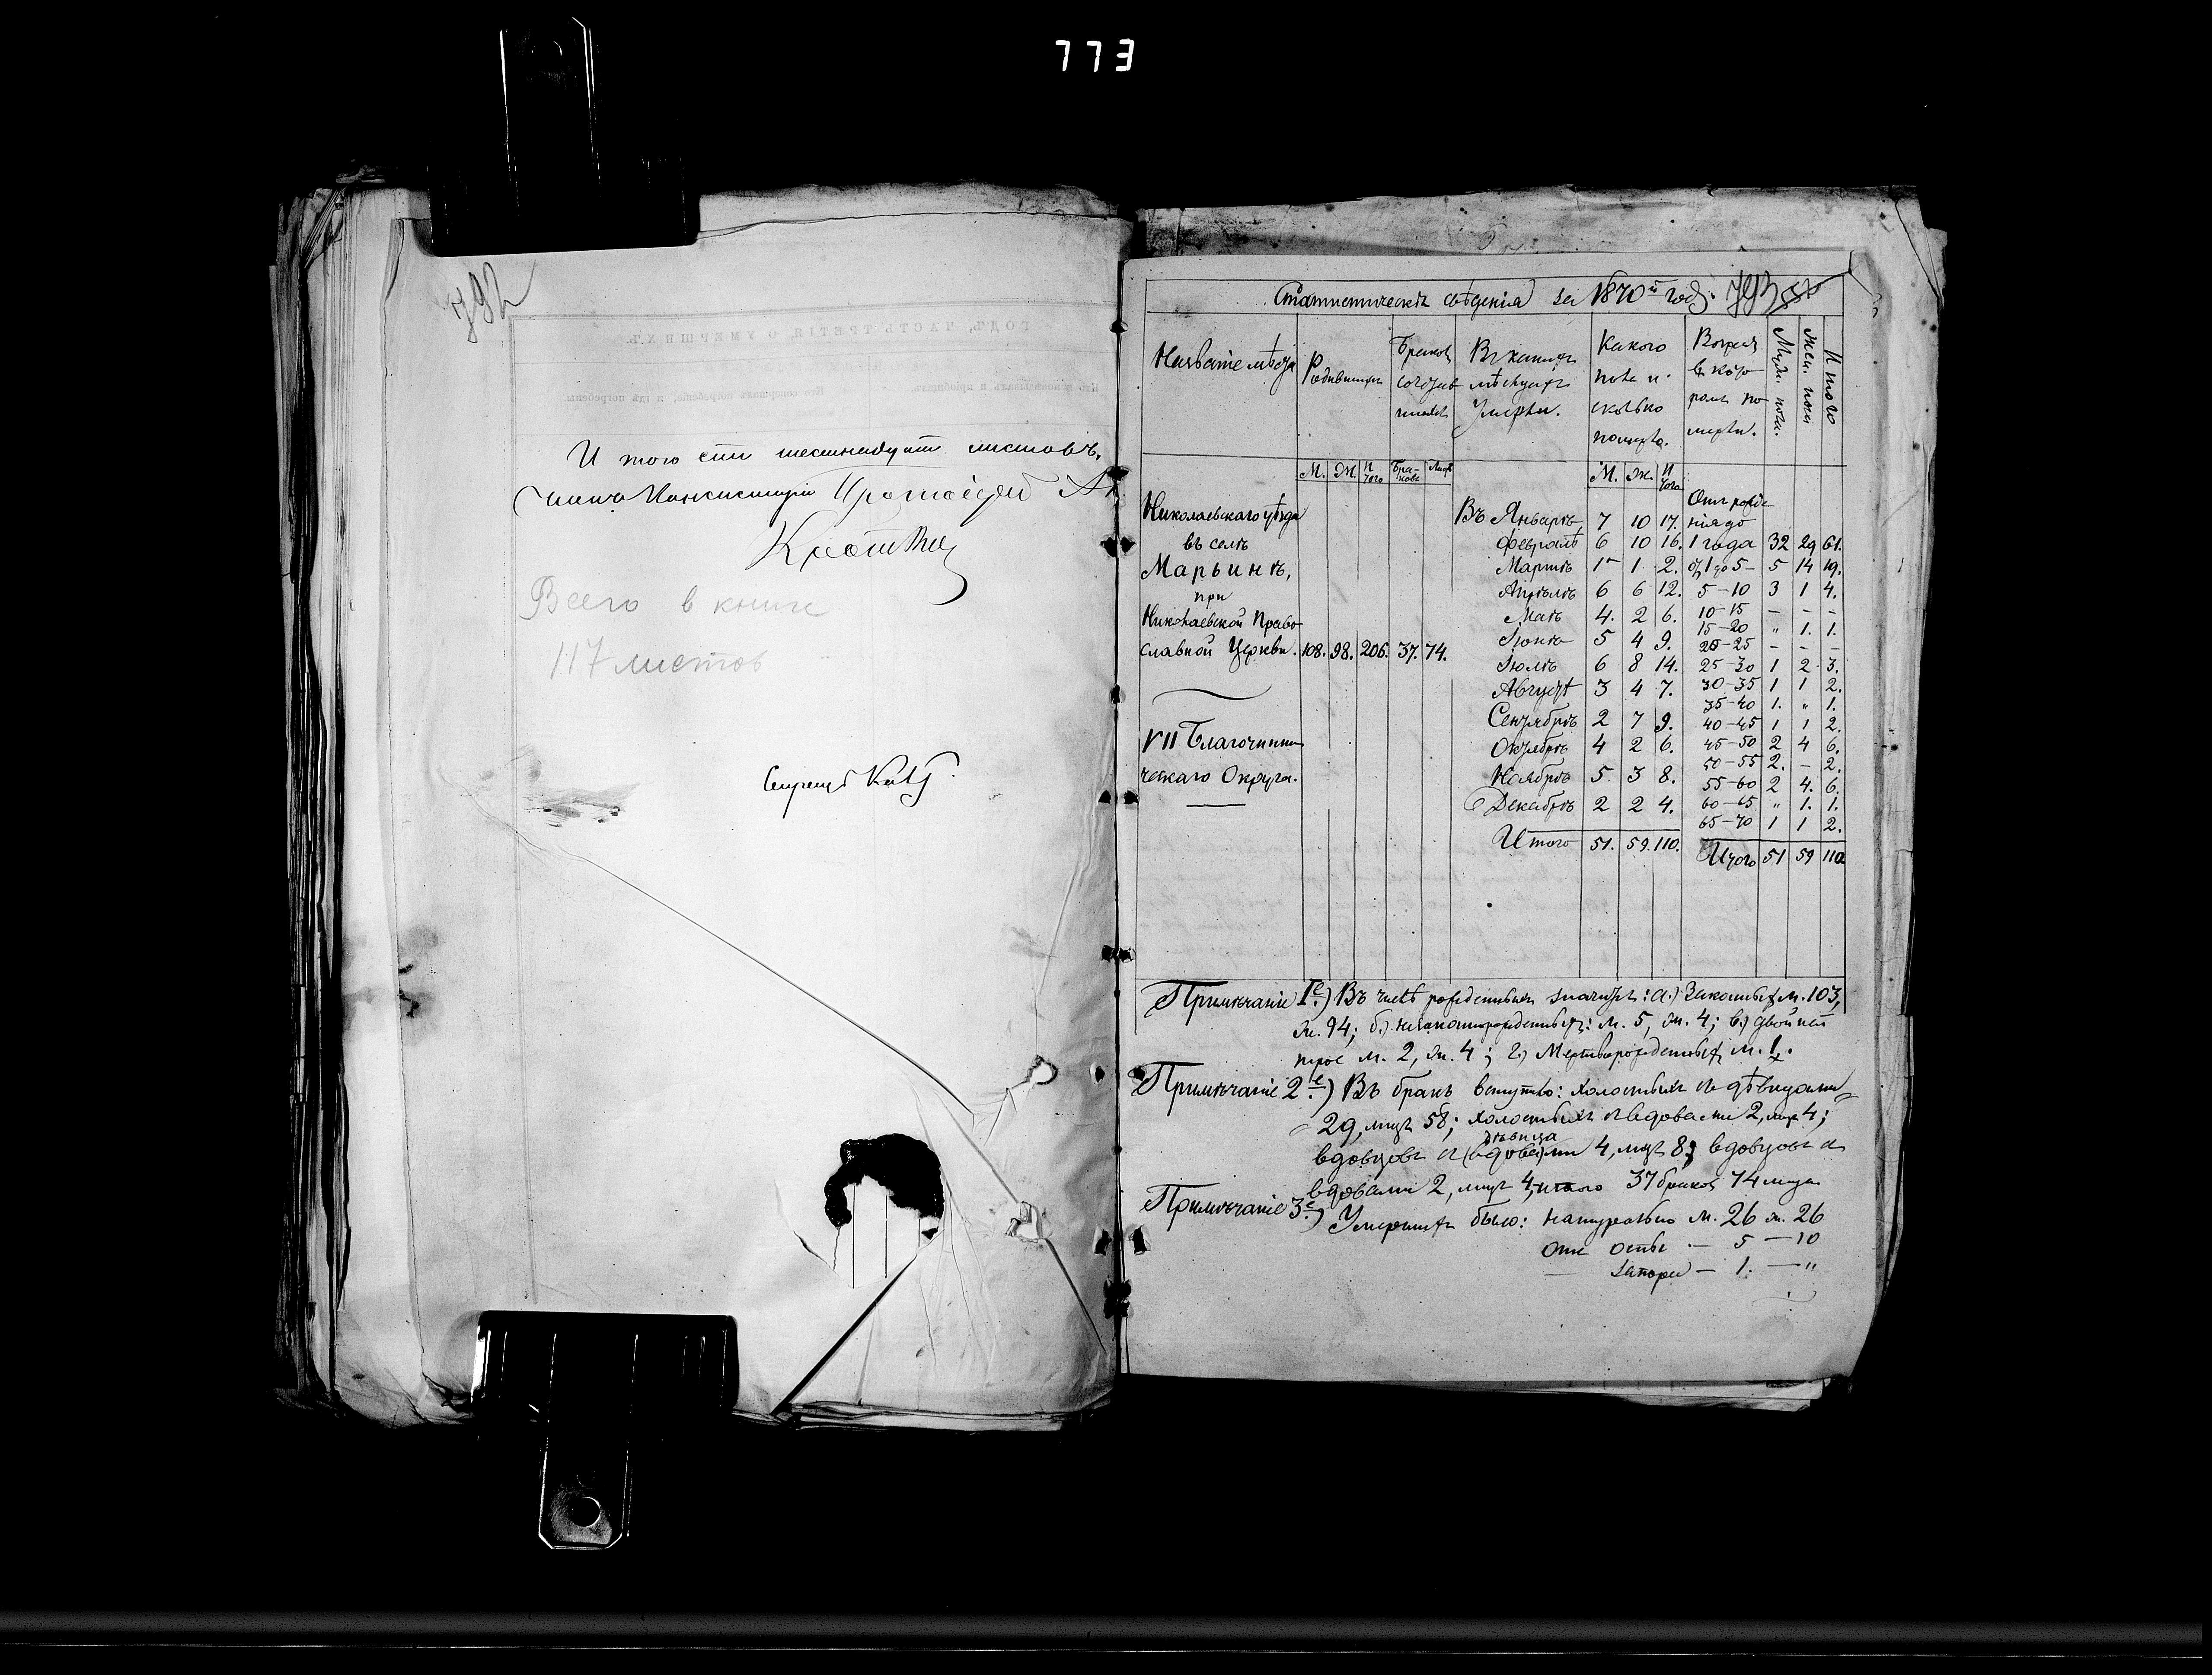 773
792
И того сто шестнадцат листовъ.
Членъ Консисторіи Протоіерей
Всего в книге
117 листов
Секретарь
Статистическія свѣденія за 1870й годъ. 793
Названіе мѣста
Родившихся
Браковъ сочетавшихся
Въ какихъ мѣсяцахъ Умерли.
Какого пола и сколько померло.
Возрастъ въ которомъ померли.
Муж. пола.
Жен. пола
Итого
М. Ж. Итого Браковъ Лицъ М. Ж. Итого
Николаевскаго уѣзда
въ селѣ
Марьинѣ,
при
Николаевской Право
славной Церкви. 108. 98. 206. 37. 74.
VII Благочинни
ческаго Округа.
Въ Январѣ 7 10 17.
Февралѣ 6 10 16.
Мартѣ 1 1 2.
Апрѣлѣ 6 6 12.
Маѣ 4. 2 6.
Іюнѣ 5 4 9.
Іюлѣ 6 8 14.
Августѣ 3 4 7.
Сентябрѣ 2 7 9.
Октябрѣ 4 2 6.
Ноябрѣ 5. 3 8.
Декабрѣ 2 2 4.
Итого 51. 59. 110.
Отъ рожде
нія до
1 года 32 29 61.
отъ 1 до 5 - 5 14 19.
5-10 3 1 4.
10-15 - - -
15-20 " 1. 1.
20-25 - - -
25-30 1 2 3.
30-35 1 1 2.
35-40 1. " 1.
40-45 1 1 2.
45-50 2 4 6.
50-55 2. - 2.
55-60 2 4. 6.
60-65 " 1. 1.
65-70 1 1 2.
Итого 51 59 110
Примѣчаніе 1е.) Въ числѣ рожденныхъ значится: а.) Законныхъ м. 103,
ж. 94; б.) незаконнорожденныхъ: м. 5, ж. 4; в.) двойней
трое м. 2, ж. 4; г.) Мертворожденныхъ м. 1.
Примѣчаніе 2е.) Въ бракъ вступило: холостыхъ съ дѣвицами
29, лицъ 58; холостыхъ съ вдовами 2, лицъ 4;
дѣвица
вдовцовъ съ (вдова)ми 4, лицъ 8; вдовцовъ съ
вдовами 2, лицъ 4, итого 37 браковъ 74 лица
Примѣчаніе 3е.) Умершихъ было: натурально м. 26 ж. 26
отъ оспы — 5 — 10
— запора — 1. — "